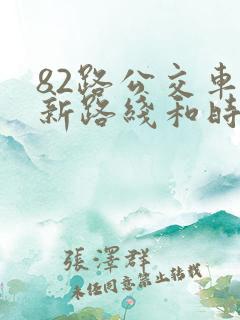 82路公交車
新路綫和時
張澤群
未經同意禁止轉載